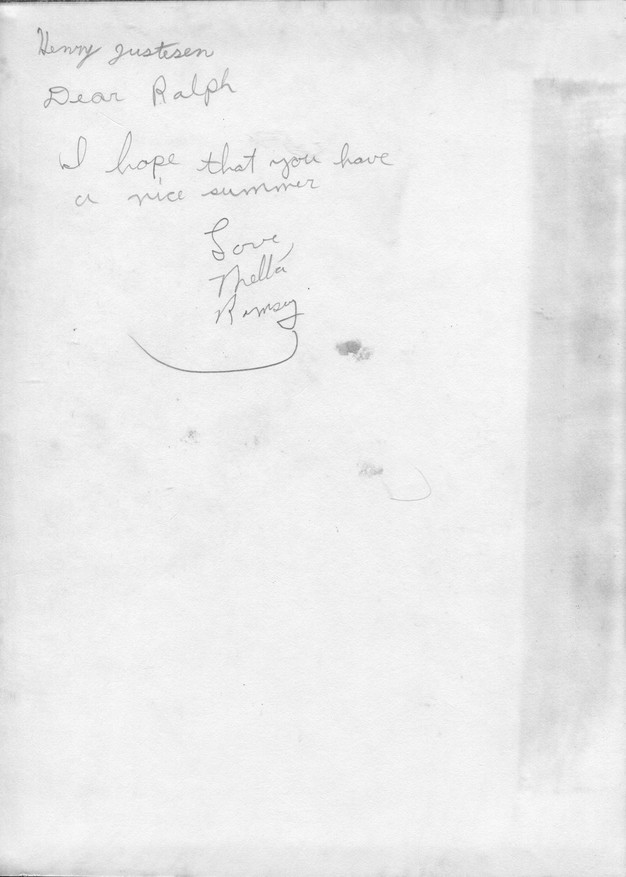 Henry Justesen
Dear Ralph
I hope that you have
a nice summer
Love,
Mella
Ramsey